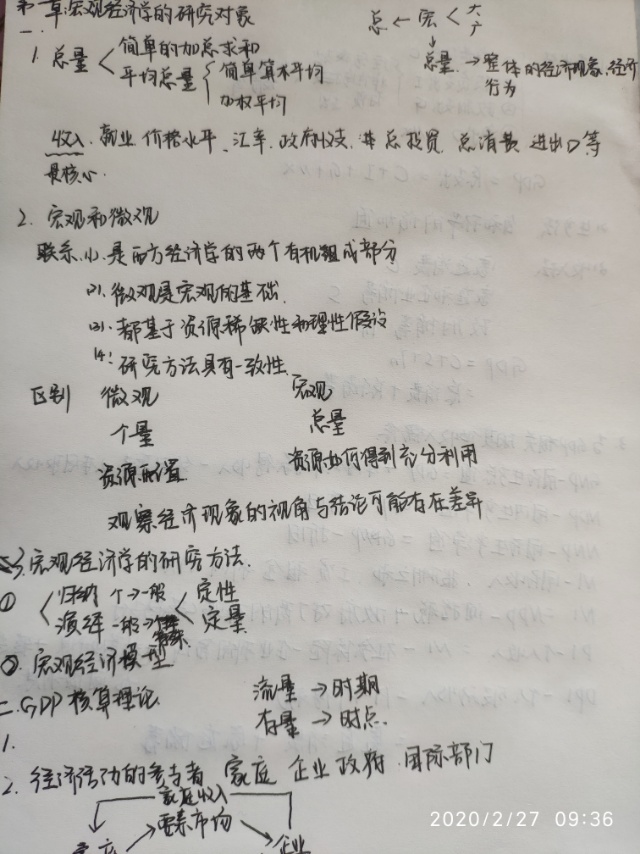 第一章:宏观经济学的研究对象
总 ← 宏 < 大 广
一.
1. 总量 < 简单的加总求和
平均总量 { 简单算术平均
加权平均
总量 → 整体的经济现象、经济
行为
收入、就业、价格水平、汇率、政府收支、 总投资、总消费、进出口等
是核心.
2. 宏观和微观
联系 (1). 是西方经济学的两个有机组成部分
(2). 微观是宏观的基础.
(3). 都基于资源稀缺性和理性假设
(4). 研究方法具有一致性.
区别 微观 宏观
个量 总量
资源配置 资源如何得到充分利用
观察经济现象的视角与结论可能存在差异
3. 宏观经济学的研究方法.
① < 归纳 个→一般 < 定性
演绎 一般→ 定量
②. 宏观经济模型
二. GDP核算理论 流量 → 时期
存量 → 时点.
1.
2. 经济活动的参与者 家庭 企业 政府 国际部门
家庭收入
要素市场
家庭 企业
2020/2/27 09:36